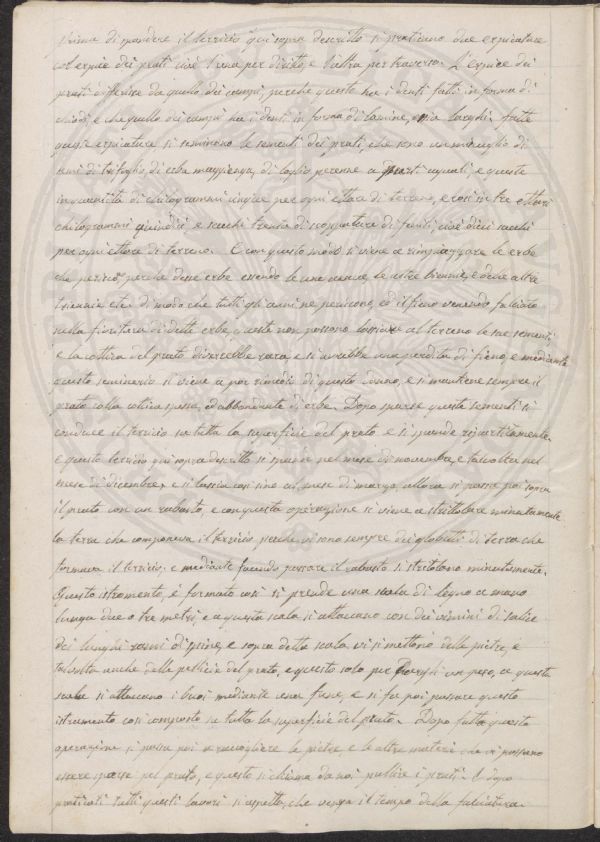 Prima di spandere il terricio qui sopra descritto si praticano due erpicature
col erpice dei prati cioè l'una per diritto, e l'altra per traverso. L'erpice dei
prati differisce da quello dei campi, perchè questo ha i denti fatti in forma di
chiodi, e che quello dei campi ha i denti in forma di lamine, larghi. fatte
queste erpicature si seminano le sementi dei prati, che sono un miscuglio di
semi di trifoglio, di erba maggienga, di loglio perenne a parti eguali, e queste
in quantità di chilogrammi cinque per ogni ettara di terreno, e così in tre ettari
chilogrammi quindici e sacchi trenta di scoppatura di fienili, cioè dieci sacchi
per ogni ettore di terreno. E con questo modo si viene a rimpiazzare le erbe
che periscono perchè dette erbe essendo le une annue, le altre bienni, e delle altre
triennie etc. di modo che tutti gli anni ne periscono, ed il fieno venendo falciato
nella fioritura di dette erbe queste non possono lasciare al terreno le sue sementi,
e la cottica del prato diverrebbe rara, e si avrebbe una perdita di fieno, e mediante
questo seminerio si viene a por rimedio di questo danno, e si mantiene sempre il
prato colla cottica spessa, ed abbondante di erbe. Dopo sparse queste sementi si
conduce il terricio su tutta la superficie del prato e si spande ripartitamente
e questo terricio qui sopra descritto si spande nel mese di novembre, e talvolta nel
mese di dicembre, e si lascia così sino al mese di marzo, allora si passa poi sopra
il prato con un rabasto, e con questa operazione si viene a stritolare minutamente
la terra che componeva il terricio perchè vi sono sempre dei globuli di terra che
formava il terricio, e mediante facendo passare il rabasto si stritolono minutamente.
Questo istromento, è formato così si prende una scala di legno a mano
lunga due o tre metri, e a questa scala si attaccano con dei vimini di salice
dei lunghi rami di spine, e sopra della scala vi si mettono delle pietre, e
talvolta anche delle pellicie del prato, e questo solo per dargli un peso, a questa
scala si attaccano i buoi mediante una fune, e si fa poi passare questo
istrumento così composto su tutta la superficie del prato. Dopo fatta questa
operazione si passa poi a raccogliere le pietre, e le altre materie che vi possano
essere sparse pel prato, e questo si chiama da noi pullire i prati. E dopo
praticati tutti questi lavori si aspetta, che venga il tempo della falciatura.